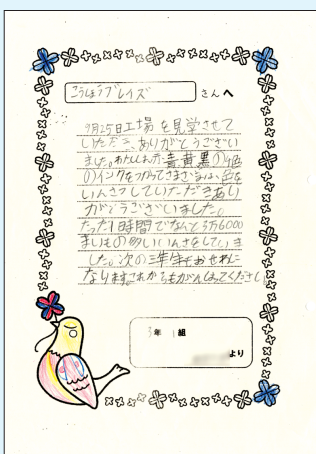 こうぼうブレイズ さんへ
9月25日工場を見学させて
いただき、ありがとうござい
ました。わたしたち青黄黒の色
のインクをつかってさまざまな色を
いんさつしていただきあり
がとうございました。
たった1時間でなんと3万6000
まいもの多いいんさをしていま
した。次の三年生もおせわに
なります。これからもがんばってください
3年 組
より